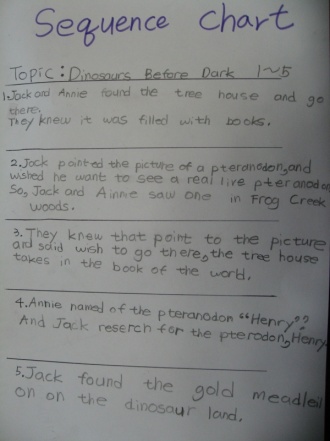 Sequence Chart
Topic: Dinosaurs Before Dark 1~5
1. Jack and Annie found the tree house and go
there.
They knew it was filled with books.
2. Jack pointed the picture of a pteranodon, and
wished he want to see a real live pteranodon
So, Jack and Ainnie saw one in Frog Creek
woods.
3. They knew that point to the picture
and said wish to go there, the tree house
takes in the book of the world.
4. Annie named of the pteranodon "Henry"?
And Jack reserch for the pterodon, Henry
5. Jack found the gold meadleil
on on the dinosaur land.